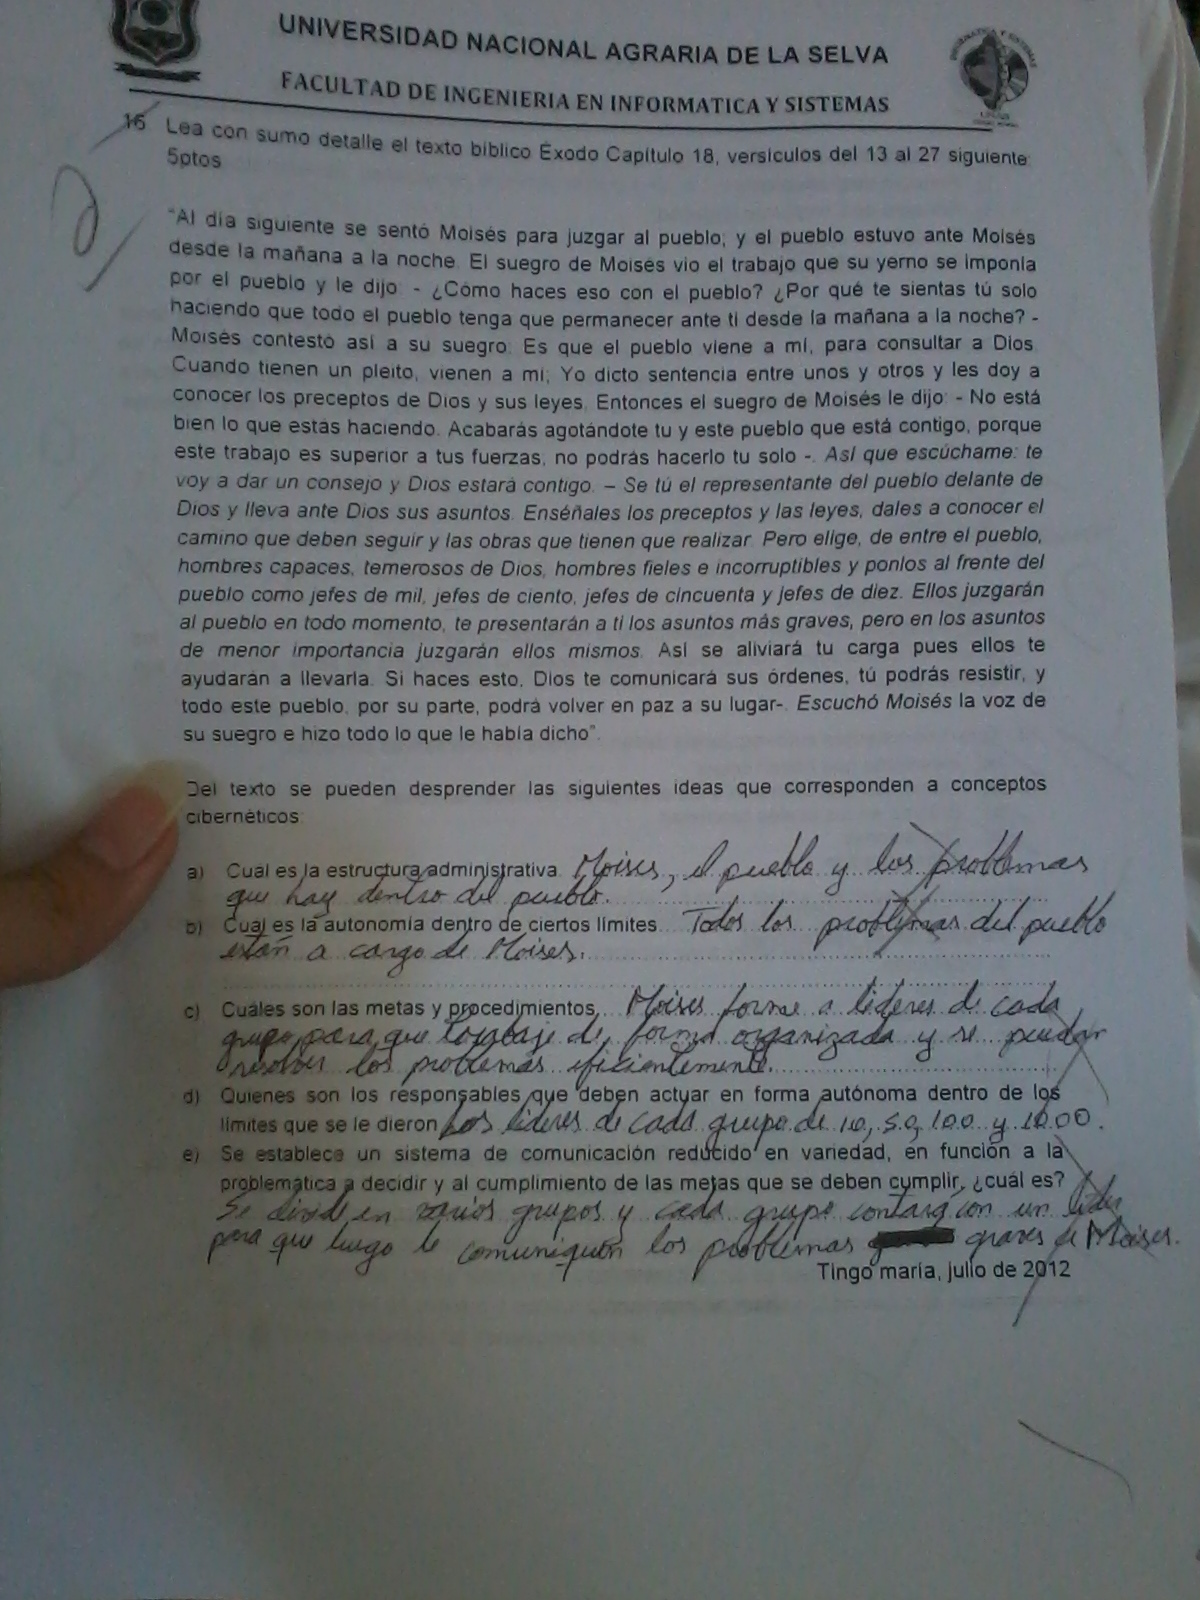 UNIVERSIDAD NACIONAL AGRARIA DE LA SELVA
FACULTAD DE INGENIERIA EN INFORMATICA Y SISTEMAS
16 Lea con sumo detalle el texto bíblico Éxodo Capítulo 18, versículos del 13 al 27 siguiente:
5ptos
"Al día siguiente se sentó Moisés para juzgar al pueblo; y el pueblo estuvo ante Moisés
desde la mañana a la noche. El suegro de Moisés vio el trabajo que su yerno se imponía
por el pueblo y le dijo: - ¿Cómo haces eso con el pueblo? ¿Por qué te sientas tú solo
haciendo que todo el pueblo tenga que permanecer ante ti desde la mañana a la noche? -
Moisés contestó así a su suegro: Es que el pueblo viene a mí, para consultar a Dios.
Cuando tienen un pleito, vienen a mi; Yo dicto sentencia entre unos y otros y les doy a
conocer los preceptos de Dios y sus leyes. Entonces el suegro de Moisés le dijo: - No está
bien lo que estás haciendo. Acabarás agotándote tu y este pueblo que está contigo, porque
este trabajo es superior a tus fuerzas, no podrás hacerlo tu solo -. Así que escúchame: te
voy a dar un consejo y Dios estará contigo. – Se tú el representante del pueblo delante de
Dios y lleva ante Dios sus asuntos. Enséñales los preceptos y las leyes, dales a conocer el
camino que deben seguir y las obras que tienen que realizar. Pero elige, de entre el pueblo,
hombres capaces, temerosos de Dios, hombres fieles e incorruptibles y ponlos al frente del
pueblo como jefes de mil, jefes de ciento, jefes de cincuenta y jefes de diez. Ellos juzgarán
al pueblo en todo momento, te presentarán a ti los asuntos más graves, pero en los asuntos
de menor importancia juzgarán ellos mismos. Así se aliviará tu carga pues ellos te
ayudarán a llevarla. Si haces esto, Dios te comunicará sus órdenes, tú podrás resistir, y
todo este pueblo, por su parte, podrá volver en paz a su lugar-. Escuchó Moisés la voz de
su suegro e hizo todo lo que le había dicho".
Del texto se pueden desprender las siguientes ideas que corresponden a conceptos
cibernéticos:
a) Cual es la estructura administrativa. Moises, el pueblo y los problemas
que hay dentro del pueblo.
b) Cual es la autonomía dentro de ciertos límites. Todos los problemas del pueblo
están a cargo de Moises.
c) Cuáles son las metas y procedimientos. Moises forme a lideres de cada
grupo para que trabaje de forma organizada y se puedan
resolver los problemas eficientemente.
d) Quienes son los responsables que deben actuar en forma autónoma dentro de los
límites que se le dieron Los lideres de cada grupo de 10, 50, 100 y 1000.
e) Se establece un sistema de comunicación reducido en variedad, en función a la
problemática a decidir y al cumplimiento de las metas que se deben cumplir, ¿cuál es?
Se divide en varios grupos y cada grupo contara con un lider
para que luego le comuniquen los problemas graves a Moises.
Tingo maría, julio de 2012